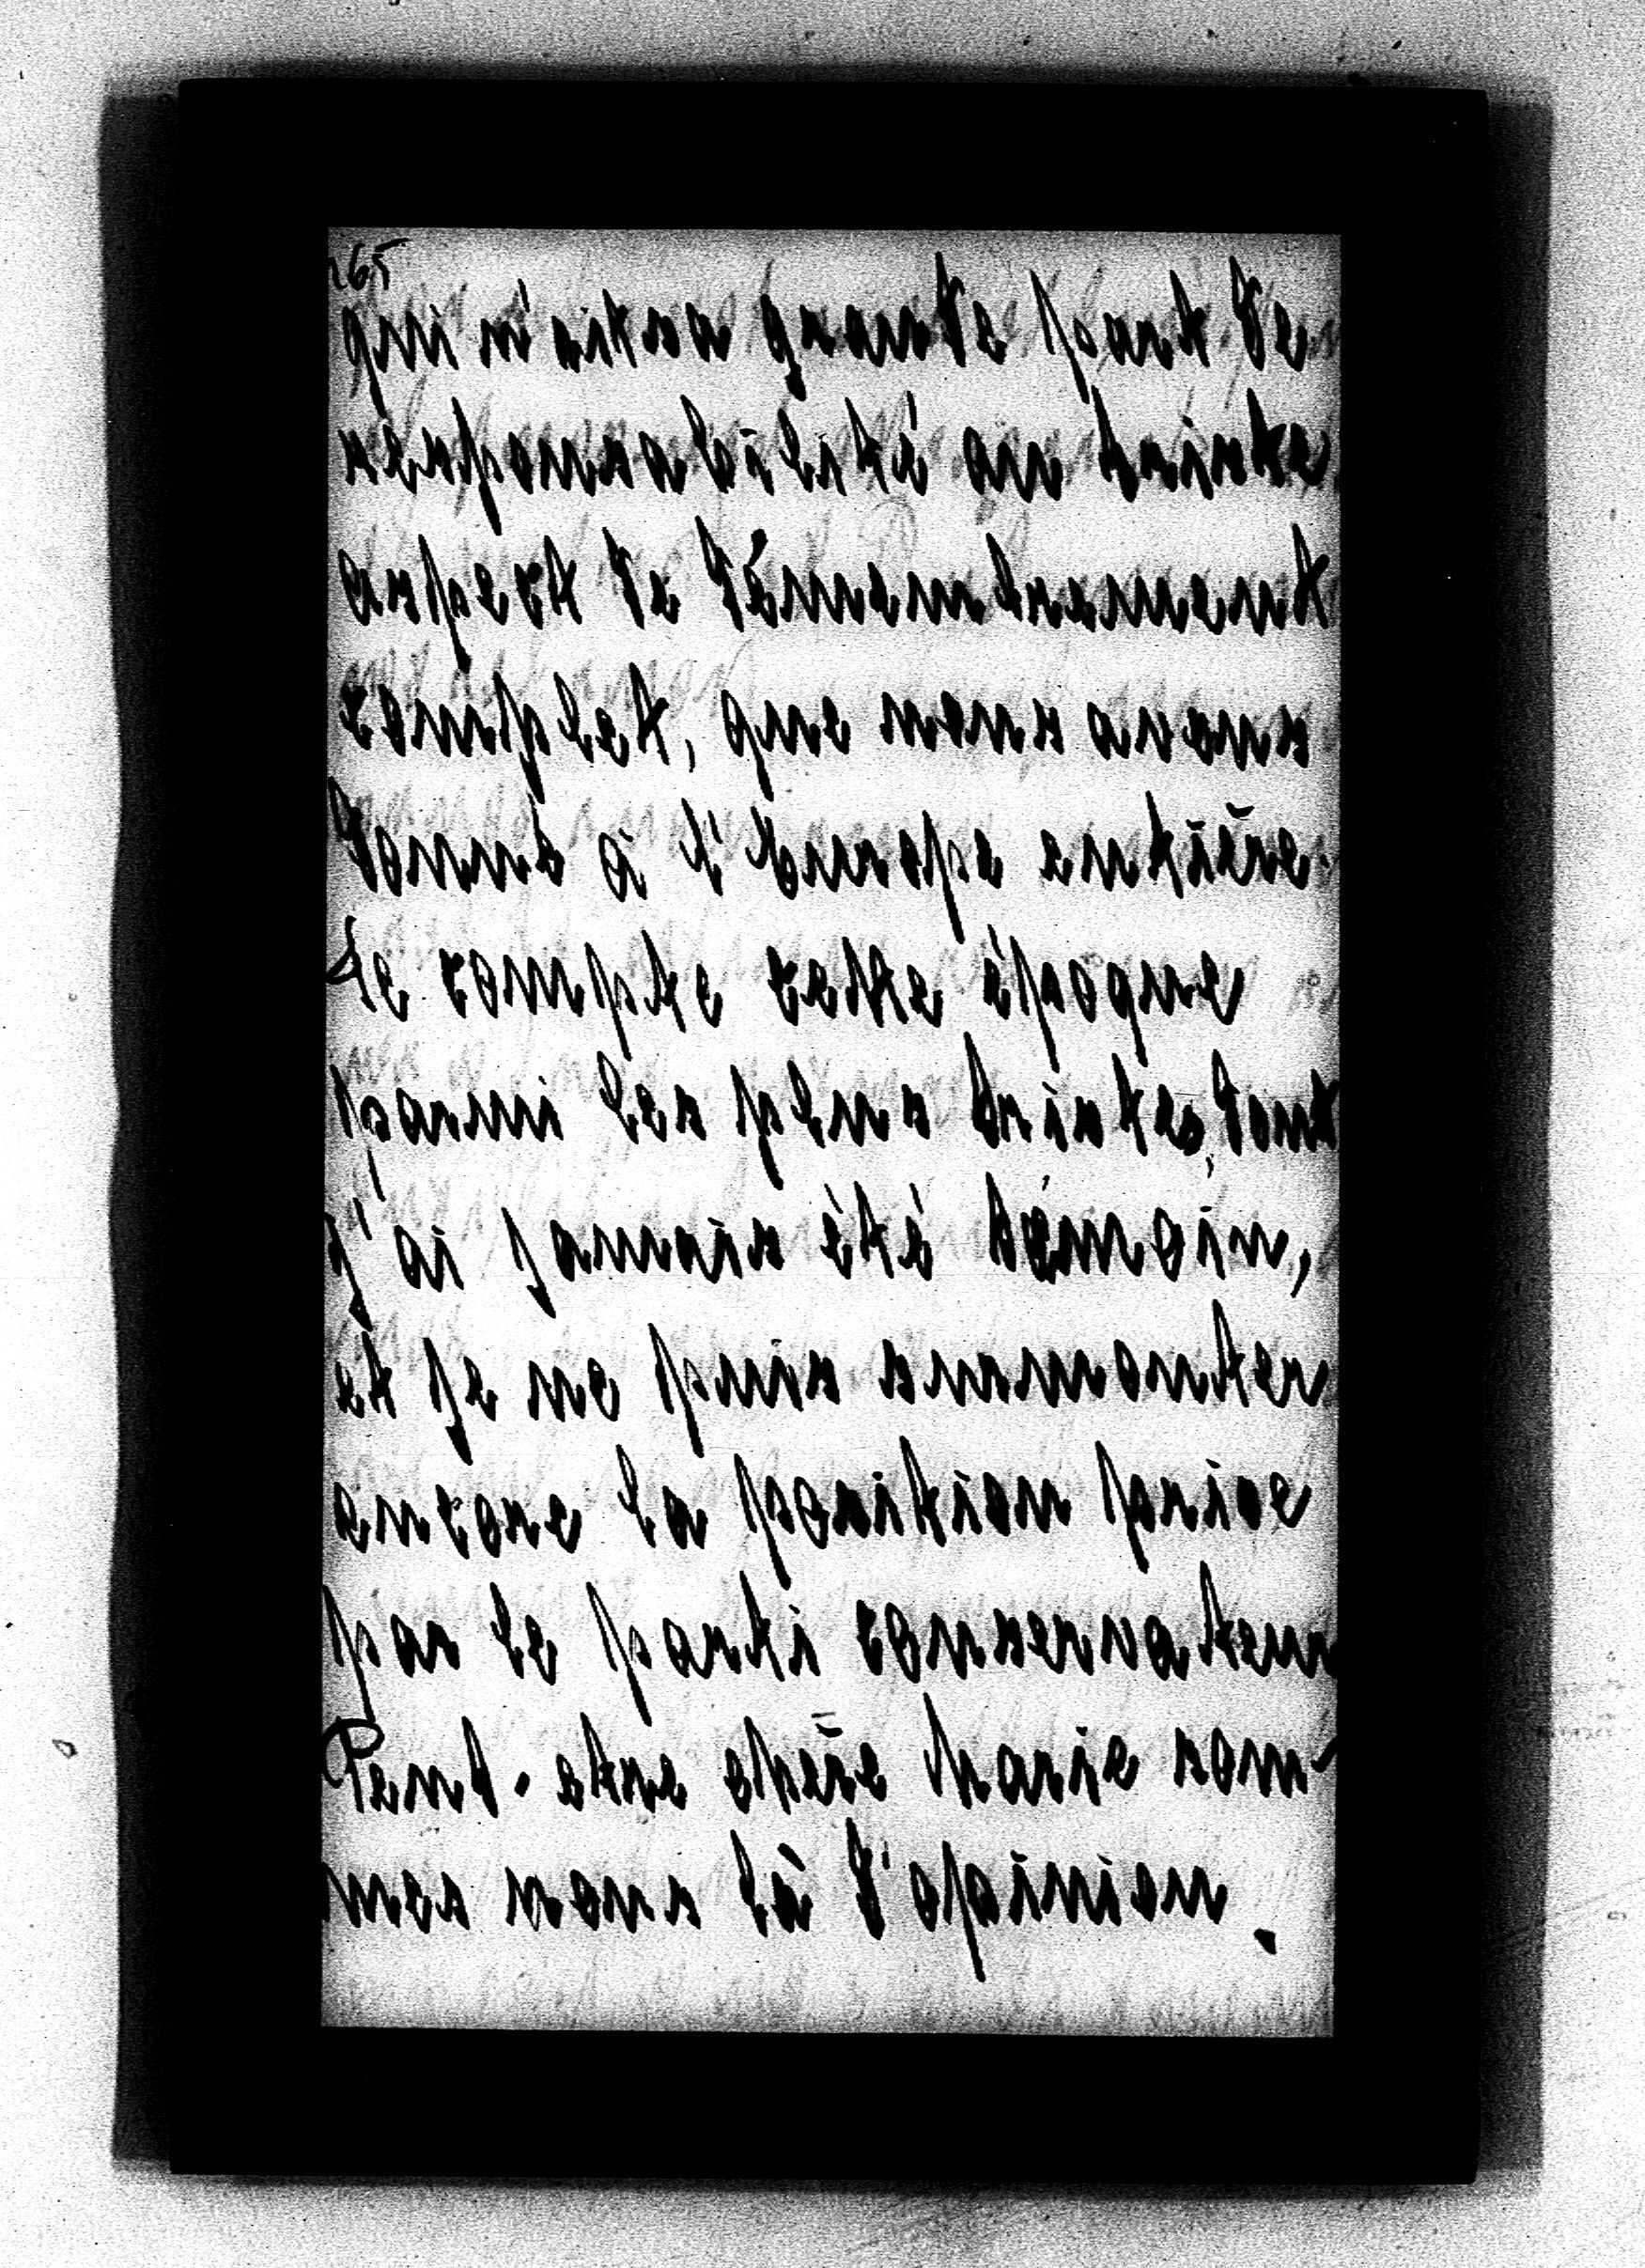 165
qui grande part de
responsabilité au triste
aspect de démembrement
complet, que nous avons
donné à l'Europe entière.
Je compte cette époque
parmi les plus tristes, dont
j'ai jamais été témoin,
et je ne puis surmonter
encore la position prise
par le parti conservateur
Pend. som-
mes nous là d'opinion.